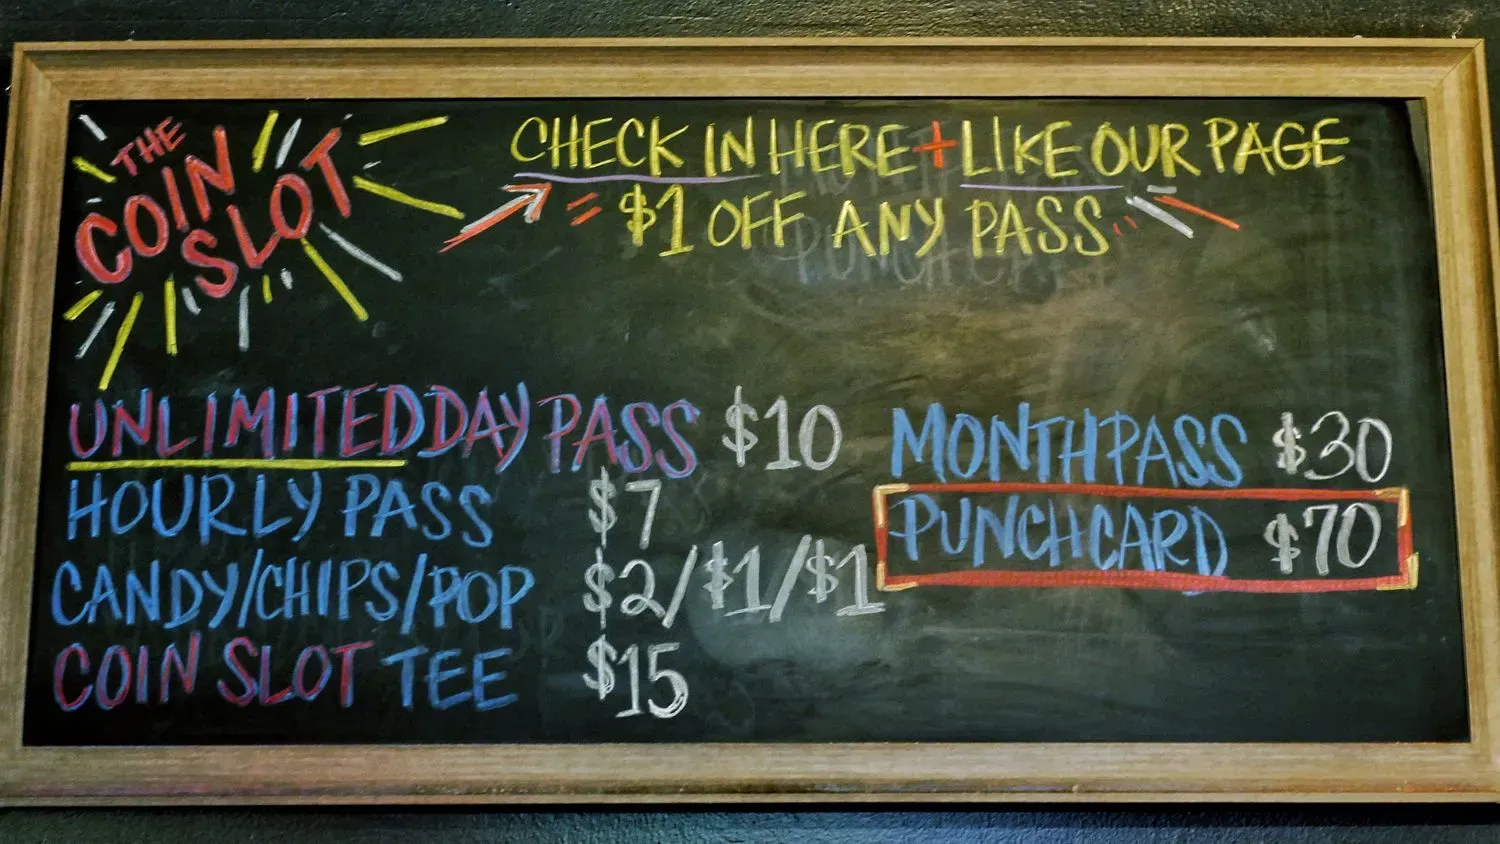 THE
COIN
SLOT
CHECK IN HERE + LIKE OUR PAGE
= $1 OFF ANY PASS
UNLIMITED DAY PASS $10
HOURLY PASS $7
CANDY/CHIPS/POP $2/$1/$1
COIN SLOT TEE $15
MONTH PASS $30
PUNCHCARD $70